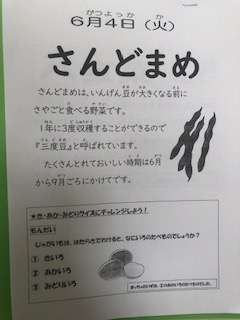 がつ よっか か
6月4日（火）
さんどまめ
さんどまめは、いんげん豆が大きくなる前に
さやごと食べる野菜です。
1年に3度収穫することができるので
『三度豆』と呼ばれています。
たくさんとれておいしい時期は6月
から9月ごろにかけてです。
★き・あか・みどりクイズにチャレンジしよう！
もんだい
じゃがいもは、はたらきでわけると、なにいろのたべものでしょうか？
① きいろ
② あかいろ
③ みどりいろ